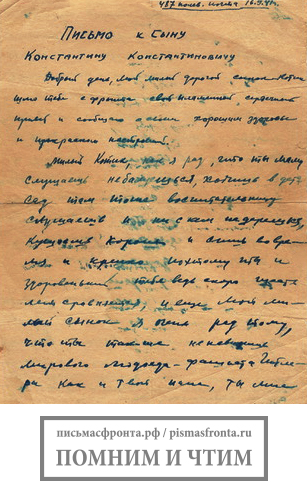 487 полев. почта 16.9.41г.
Письмо к Сыну
Константину Константиновичу
Добрый день, мой милый дорогой сынок Котик
шлю тебе с фронта свой пламенный сердечный
привет и сообщаю о своем хорошем здоровье
и прекрасном настроении.
Милый Котик, как я рад, что ты маму
слушаешь не балуешься, ходишь в дет
сад там тоже воспитательницу
слушаешь и ни с кем не дерешься,
Кушаешь хорошо и спишь во вре
мя и крепко поэтому ты и
здоровенький тебе ведь скоро шесть
лет сравняется, и еще мой ми-
лый сынок я очень рад тому,
что ты также ненавидишь
мирового людоеда-фашиста Гитле-
ра как и твой папа, ты мне
письмасфронта.рф / pismasfronta.ru
ПОМНИМ И ЧТИМ